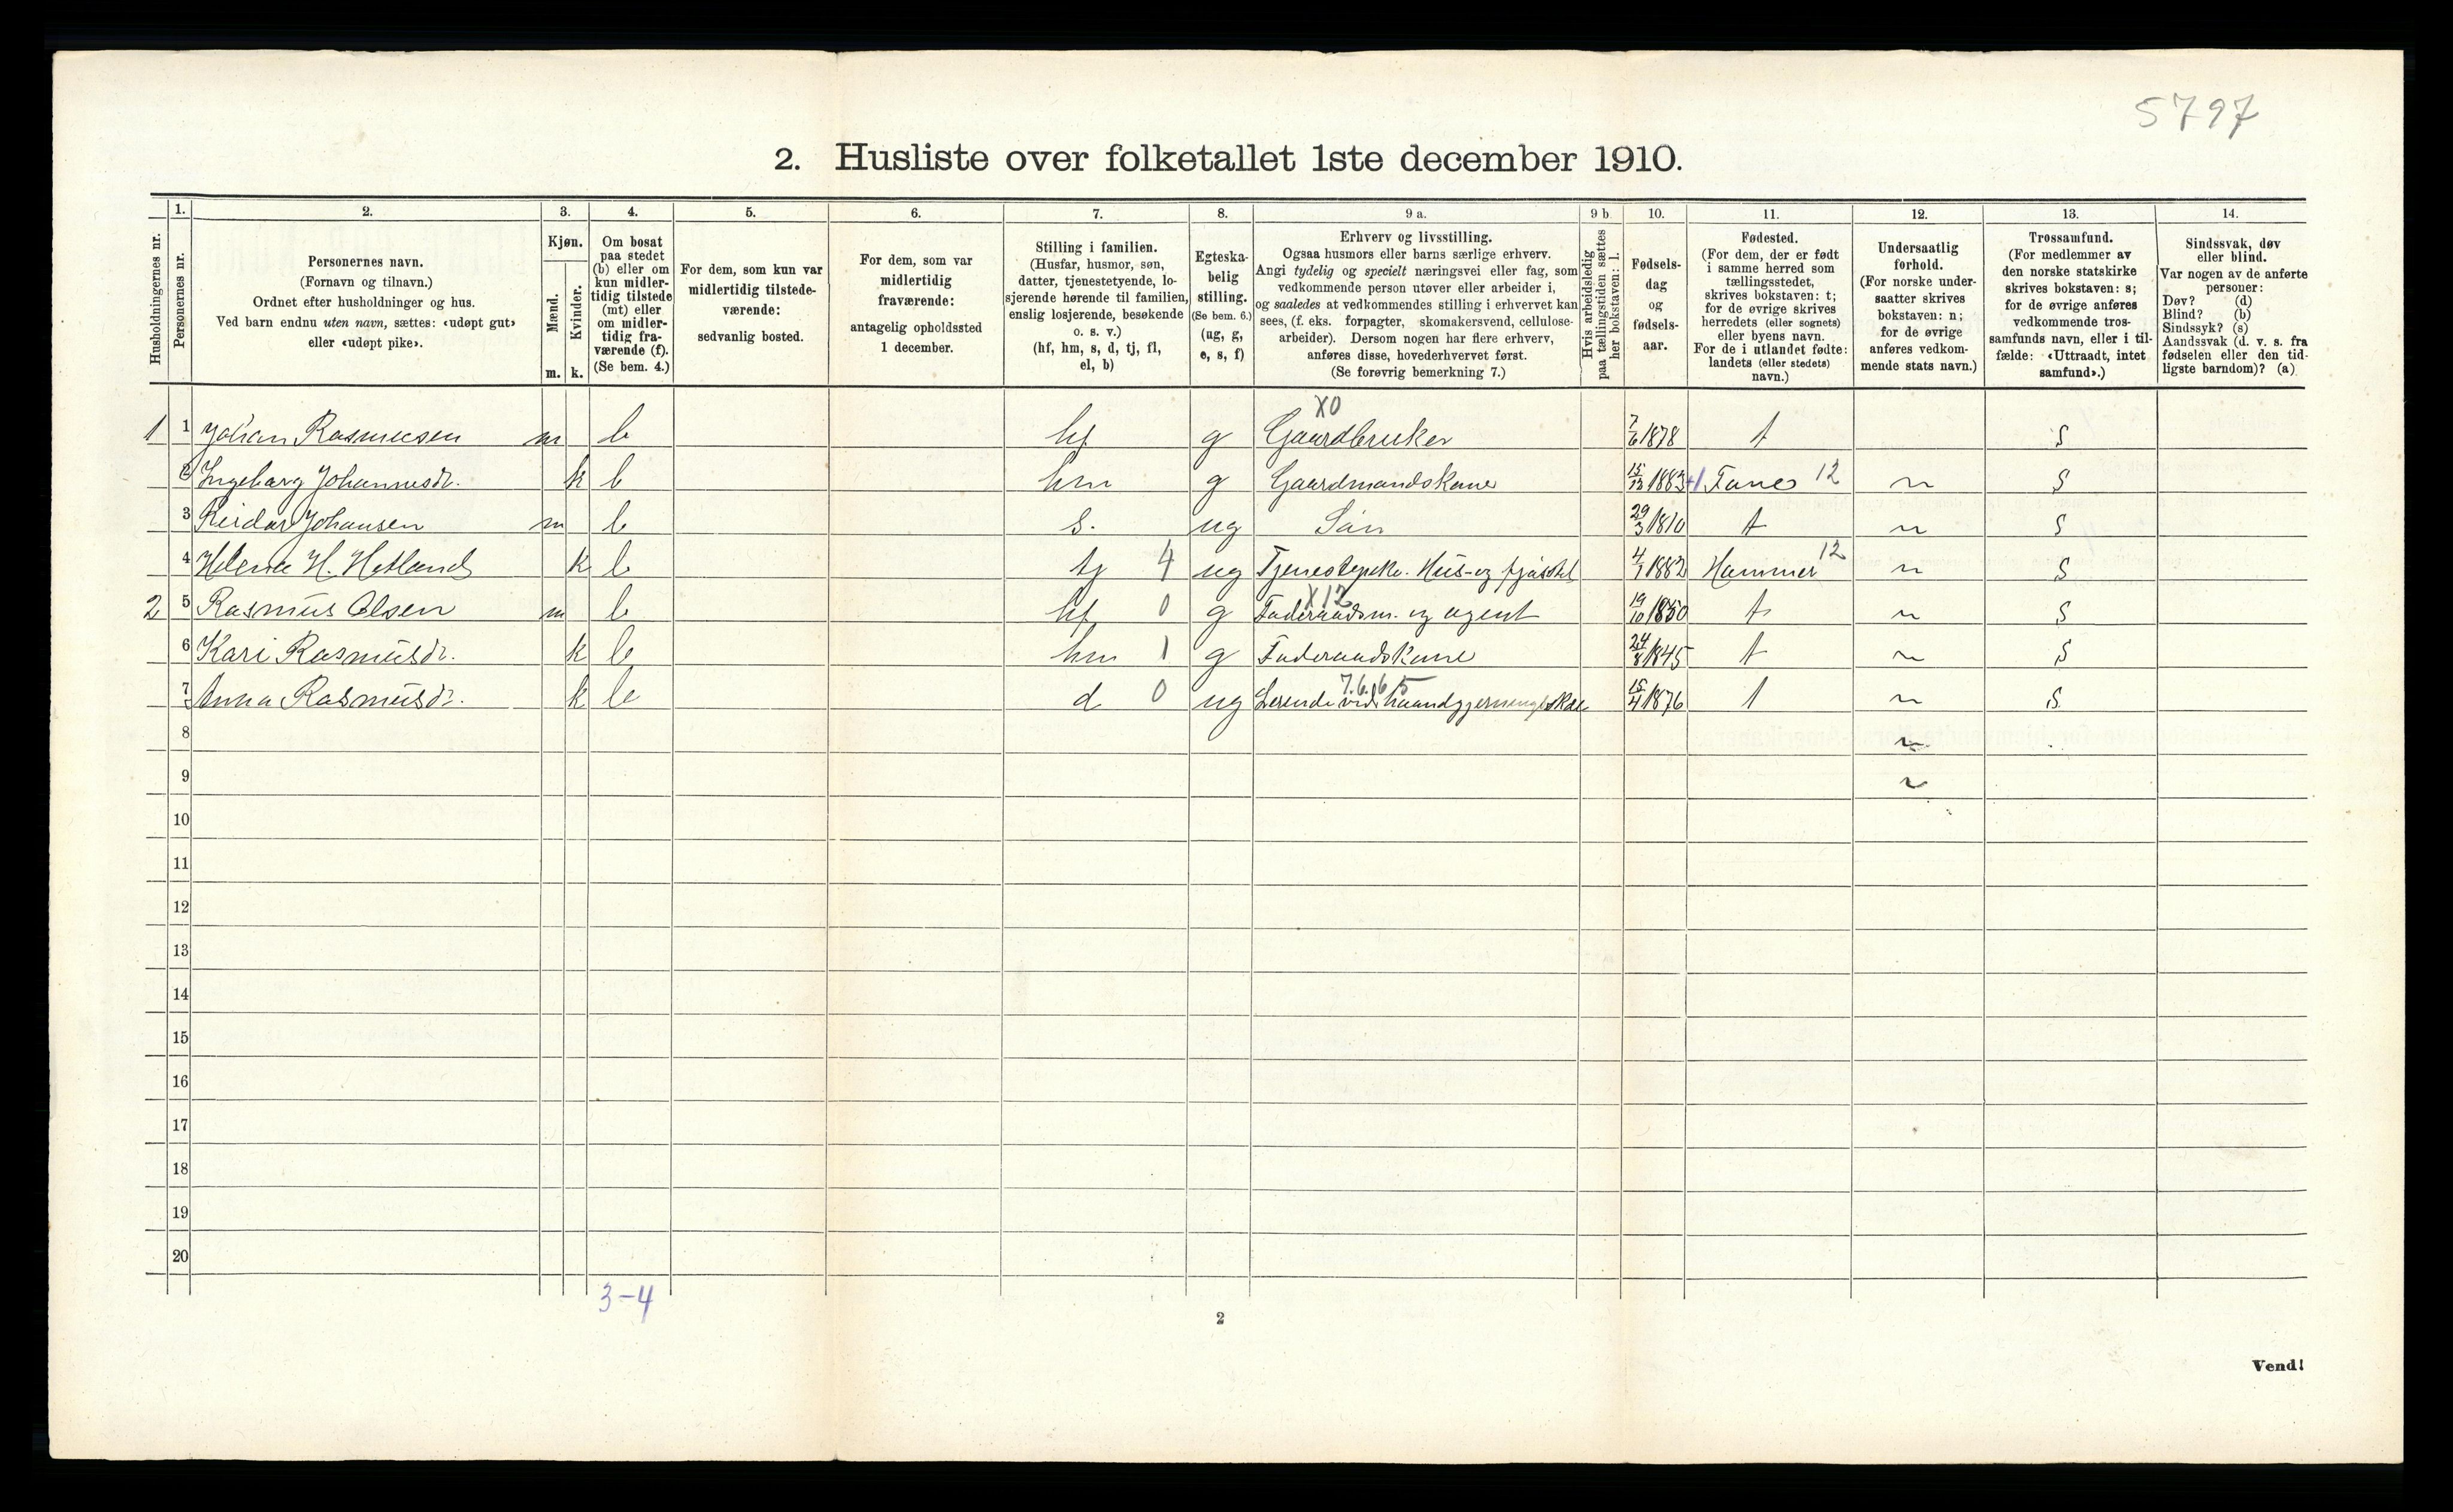 5797
2. Husliste over folketallet 1ste december 1910.
Husholdningernes nr.
1. Personernes nr.
2. Personernes navn.
(Fornavn og tilnavn.)
Ordnet efter husholdninger og hus.
Ved barn endnu uten navn, sættes: «udøpt gut»
eller «udøpt pike».
3. Kjøn.
Mænd. Kvinder.
m. k.
4. Om bosat
paa stedet
(b) eller om
kun midler-
tidig tilstede
(mt) eller
om midler-
tidig fra-
værende (f).
(Se bem. 4.)
5. For dem, som kun var
midlertidig tilstede-
værende:
sedvanlig bosted.
6. For dem, som var
midlertidig
fraværende:
antagelig opholdssted
1 december.
7. Stilling i familien.
(Husfar, husmor, søn,
datter, tjenestetyende, lo-
sjerende hørende til familien,
enslig losjerende, besøkende
o. s. v.)
(hf, hm, s, d, tj, fl,
el, b)
8. Egteska-
belig
stilling.
(Se bem. 6.)
(ug, g,
e, s, f)
9 a. Erhverv og livsstilling.
Ogsaa husmors eller barns særlige erhverv.
Angi tydelig og specielt næringsvei eller fag, som
vedkommende person utøver eller arbeider i,
og saaledes at vedkommendes stilling i erhvervet kan
sees, (f. eks. forpagter, skomakersvend, cellulose-
arbeider). Dersom nogen har flere erhverv,
anføres disse, hovederhvervet først.
(Se forøvrig bemerkning 7.)
9 b. Hvis arbeidsledig
paa tællingstiden sættes
her bokstaven: l.
10. Fødsels-
dag
og
fødsels-
aar.
11. Fødested.
(For dem, der er født
i samme herred som
tællingsstedet,
skrives bokstaven: t;
for de øvrige skrives
herredets (eller sognets)
eller byens navn.
For de i utlandet fødte:
landets (eller stedets)
navn.)
12. Undersaatlig
forhold.
(For norske under-
saatter skrives
bokstaven: n;
for de øvrige
anføres vedkom-
mende stats navn.)
13. Trossamfund.
(For medlemmer av
den norske statskirke
skrives bokstaven: s;
for de øvrige anføres
vedkommende tros-
samfunds navn, eller i til-
fælde: «Uttraadt, intet
samfund».)
14. Sindssvak, døv
eller blind.
Var nogen av de anførte
personer:
Døv? (d)
Blind? (b)
Sindssyk? (s)
Aandssvak (d. v. s. fra
fødselen eller den tid-
ligste barndom)? (a)
X0
1 1 Johan Rasmussen m b hf g Gaardbruker 7/6 1878 t s
2 Ingeborg Johannesdr. k b hm g Gaardmandskone 15/12 1883 Fane 12 n s
3 Reidar Johansen m b s. ug Sön 29/3 1810 t n s
4 Helena H. Hetland k b tj 4 ug Hus- og 4/1 1882 Hammer 12 n s
X12
2 5 Rasmus Olsen m b hf 0 g og agent 19/10 1850 t n s
6 Kari Rasmusdr. k b hm 1 g 24/8 1845 t n s
7.6.6 5
7 Anna Rasmusdr. k b d 0 ug ved 15/4 1876 t n s
8 n
9 n
10
11
12
13
14
15
16
17
18
19
20
3-4
2
Vend!